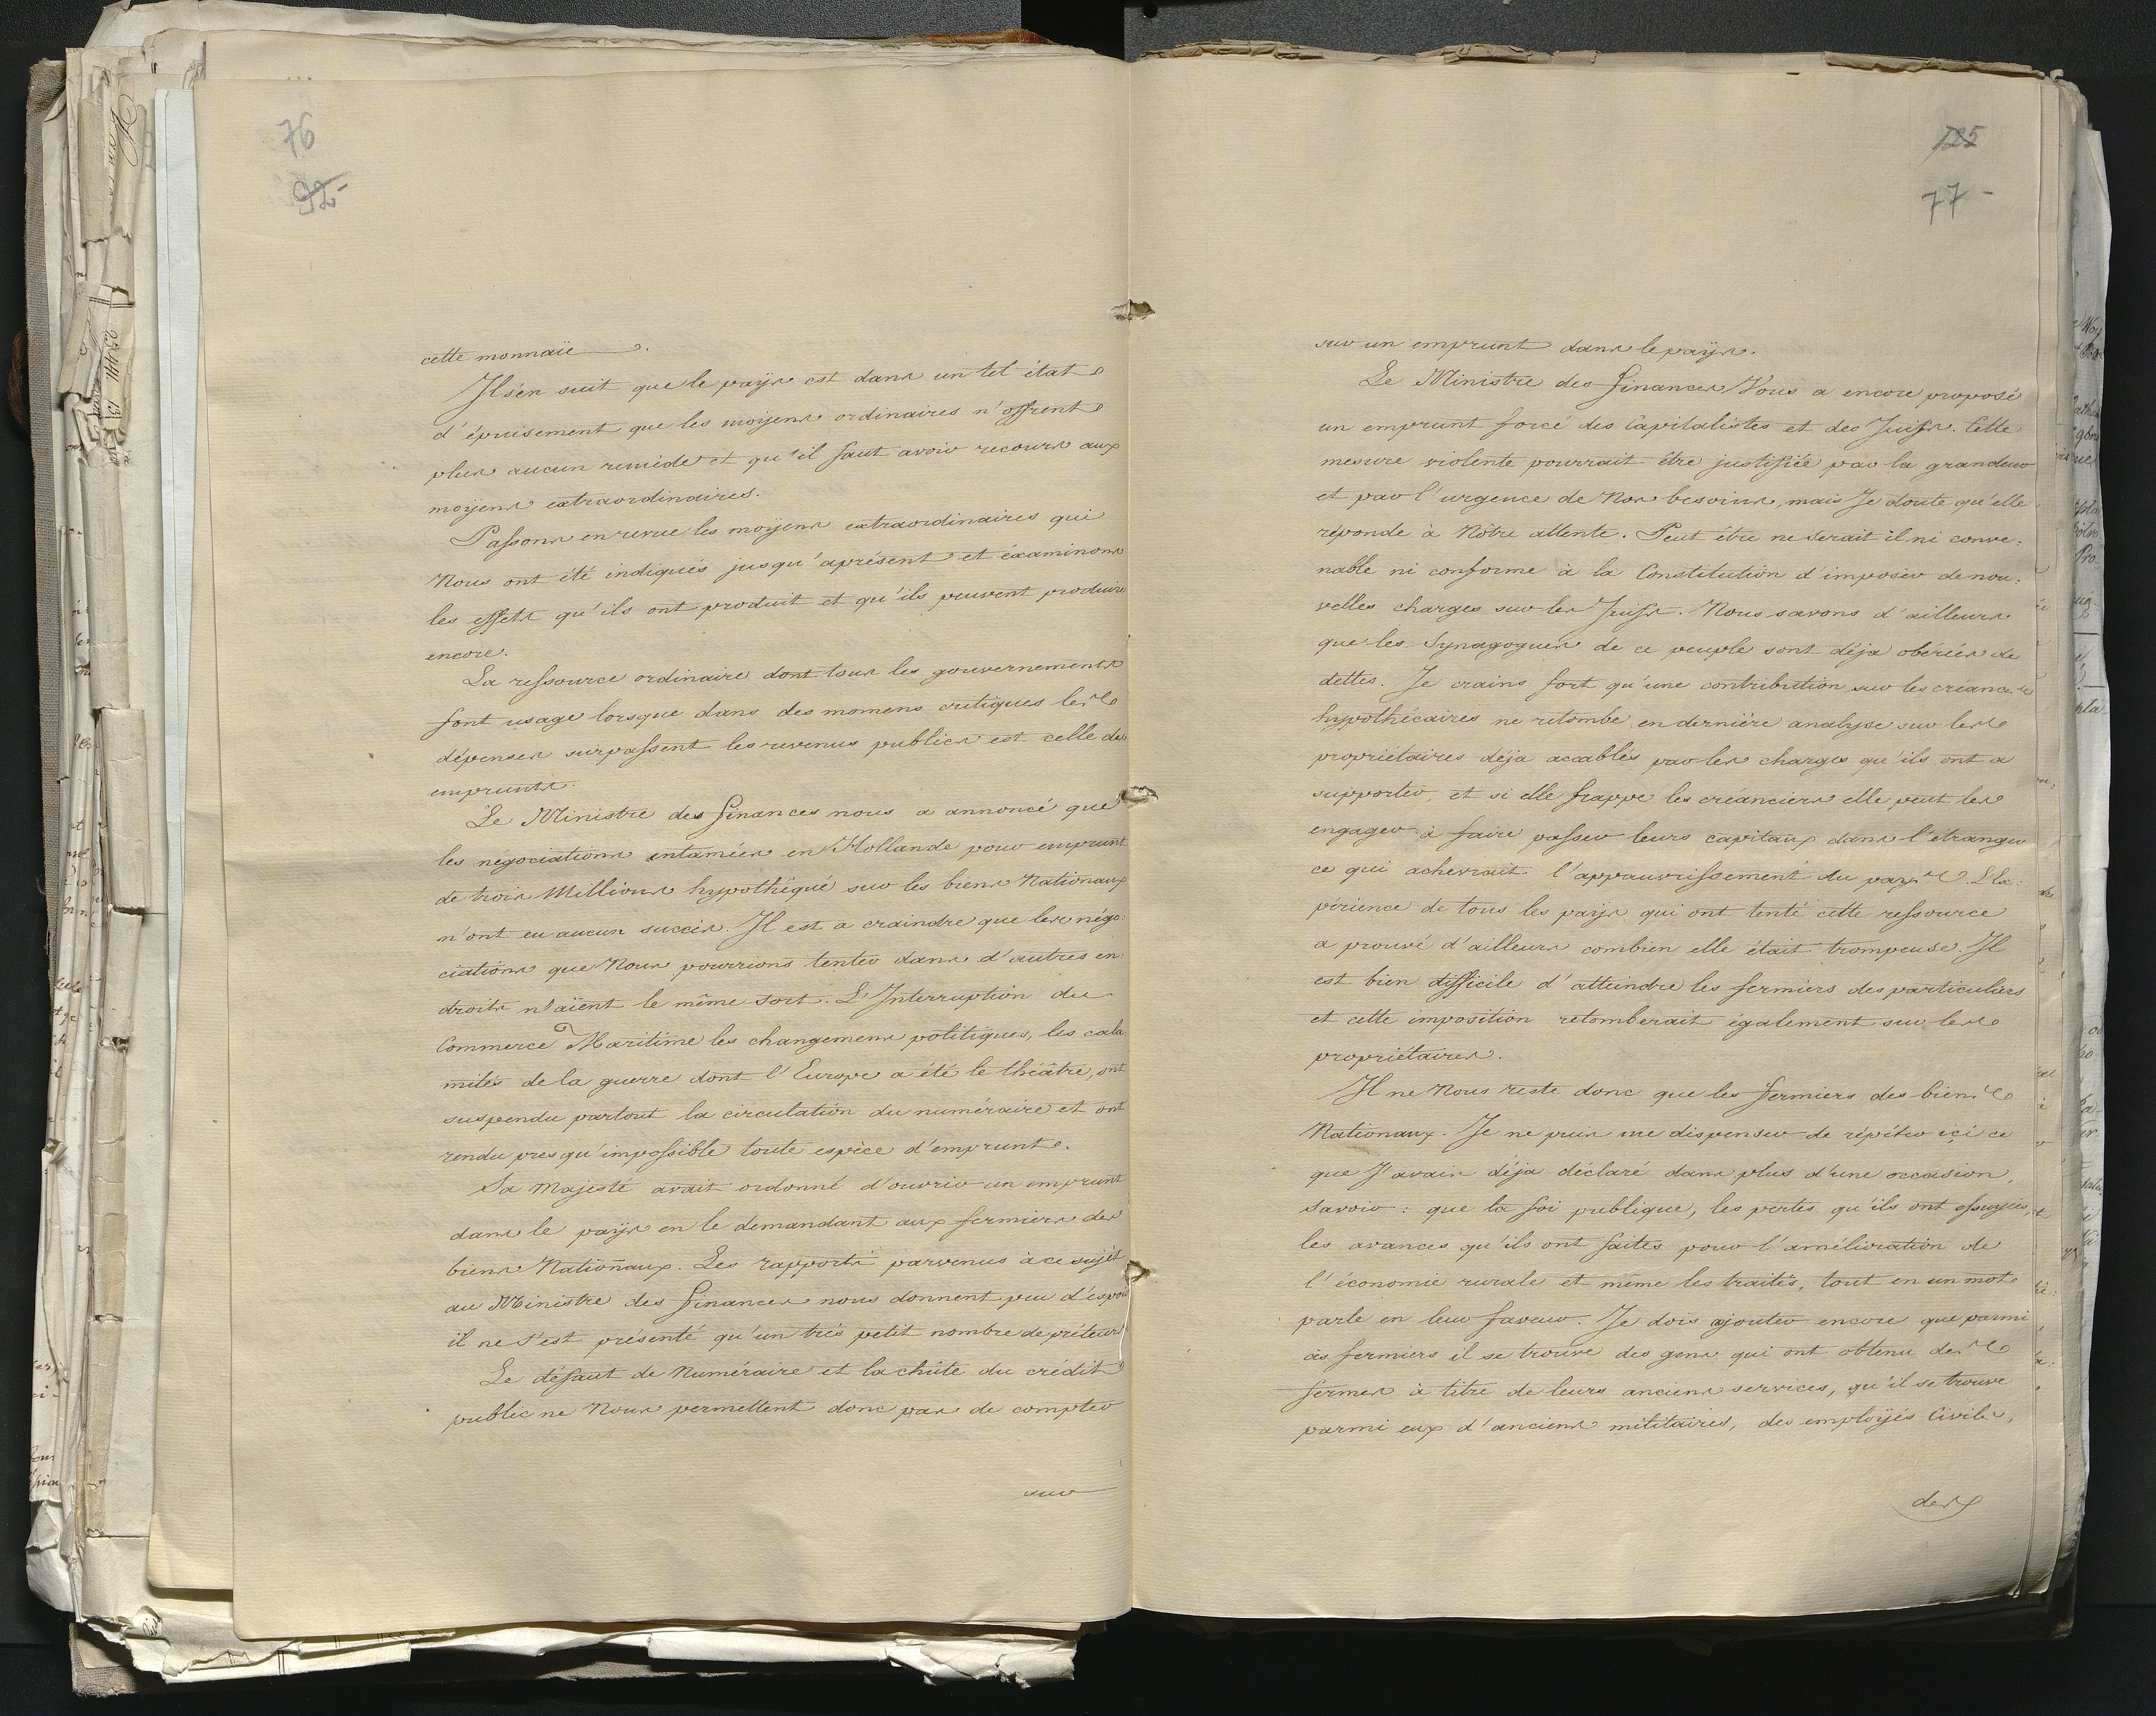 76
92-
cette monnaie.
Il s'en suit que le pays est dans un tel état
d'épuisement que les moyens ordinaires n'offrent
plus aucun remède et qu'il faut avoir recours aux
moyens extraordinaires.
Passons en revue les moyens extraordinaires qui
Nous ont été indiqués jusqu'aprésent et éxaminons
les effets qu'ils ont produit et qu'ils peuvent produire
encore.
La ressource ordinaire dont tous les gouvernements
font usage lorsque dans des momens critiques les
dépenses surpassent les revenus publics est celle des
emprunts.
Le Ministre des finances nous a annoncé que
les négociations entamées en Hollande pour emprunt
de trois Millions hypothéqué sur les biens Nationaux
n'ont eu aucun succès. Il est a craindre que les négo:
ciations que Nous pourrions tenter dans d'autres en:
droits n'aïent le même sort. L'Interruption du
Commerce Maritime les changemens politiques, les cala
mités de la guerre dont l'Europe a été le théâtre, ont
suspendu partout la circulation du numéraire et ont
rendu presqu'impossible toute espèce d'emprunt.
Sa Majesté avait ordonné d'ouvrir un emprunt
dans le pays en le demandant aux fermiers des
biens Nationaux. Les rapports parvenus à ce sujét
au Ministre des finances nous donnent peu d'éspoir
il ne s'est présenté qu'un très petit nombre de préteurs
Le défaut de Numéraire et la chûte du crédit
public ne Nous permettent donc pas de compter
sur
125
77-
sur un emprunt dans le pays.
Le Ministre des finances Vous a encore proposé
un emprunt forcé des Capitalistes et des Juifs. Cette
mesure violente pourrait être justifiée par la grandeur
et par l'urgence de Nos besoins, mais Je doute qu'elle
réponde à Nôtre attente. Peut être ne serait il ni conve:
nable ni conforme à la Constitution d'imposer de nou:
velles charges sur les Juifs. Nous savons d'ailleurs
que les Synagogues de ce peuple sont déja obérées de
dettes. Je crains fort qu'une contribution sur les créances
hypothécaires ne retombe en dernière analyse sur les
propriétaires déja accablés par les charges qu'ils ont a
supporter et si elle frappe les créanciers elle peut les
engager à faire passer leurs capitaux dans l'étranger
ce qui acheverait l'appauvrissement du pays. L'Ex:
périence de tous les pays qui ont tenté cette ressource
a prouvé d'ailleurs combien elle était trompeuse. Il
est bien difficile d'atteindre les fermiers des particuliers
et cette imposition retomberait également sur les
propriétaires.
Il ne Nous reste donc que les fermiers des biens
Nationaux. Je ne puis me dispenser de répéter içi ce
que J'avais déja déclaré dans plus d'une occasion,
savoir: que la foi publique, les pertes qu'ils ont essuyées,
les avances qu'ils ont faites pour l'amélioration de
l'économie rurale et même les traités, tout en un mot
parle en leur faveur. Je dois ajouter encore que parmi
ces fermiers il se trouve des gens qui ont obtenu des
fermes à titre de leurs anciens services, qu'il se trouve
parmi eux d'anciens militaires, des employés Civils,
des